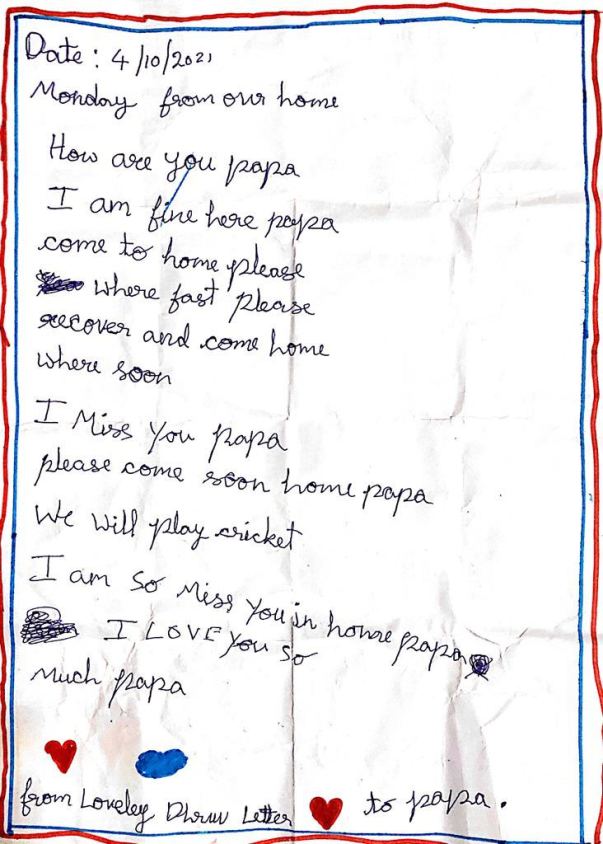 Date: 4/10/2021
Monday from our home
How are you papa
I am fine here papa
come to home please
where fast please
recover and come home
where soon
I Miss You papa
please come soon home papa
We will play cricket
I am so Miss you in home papa
I LOVE you so
much papa
from Loveley Dhruv Letter to papa.